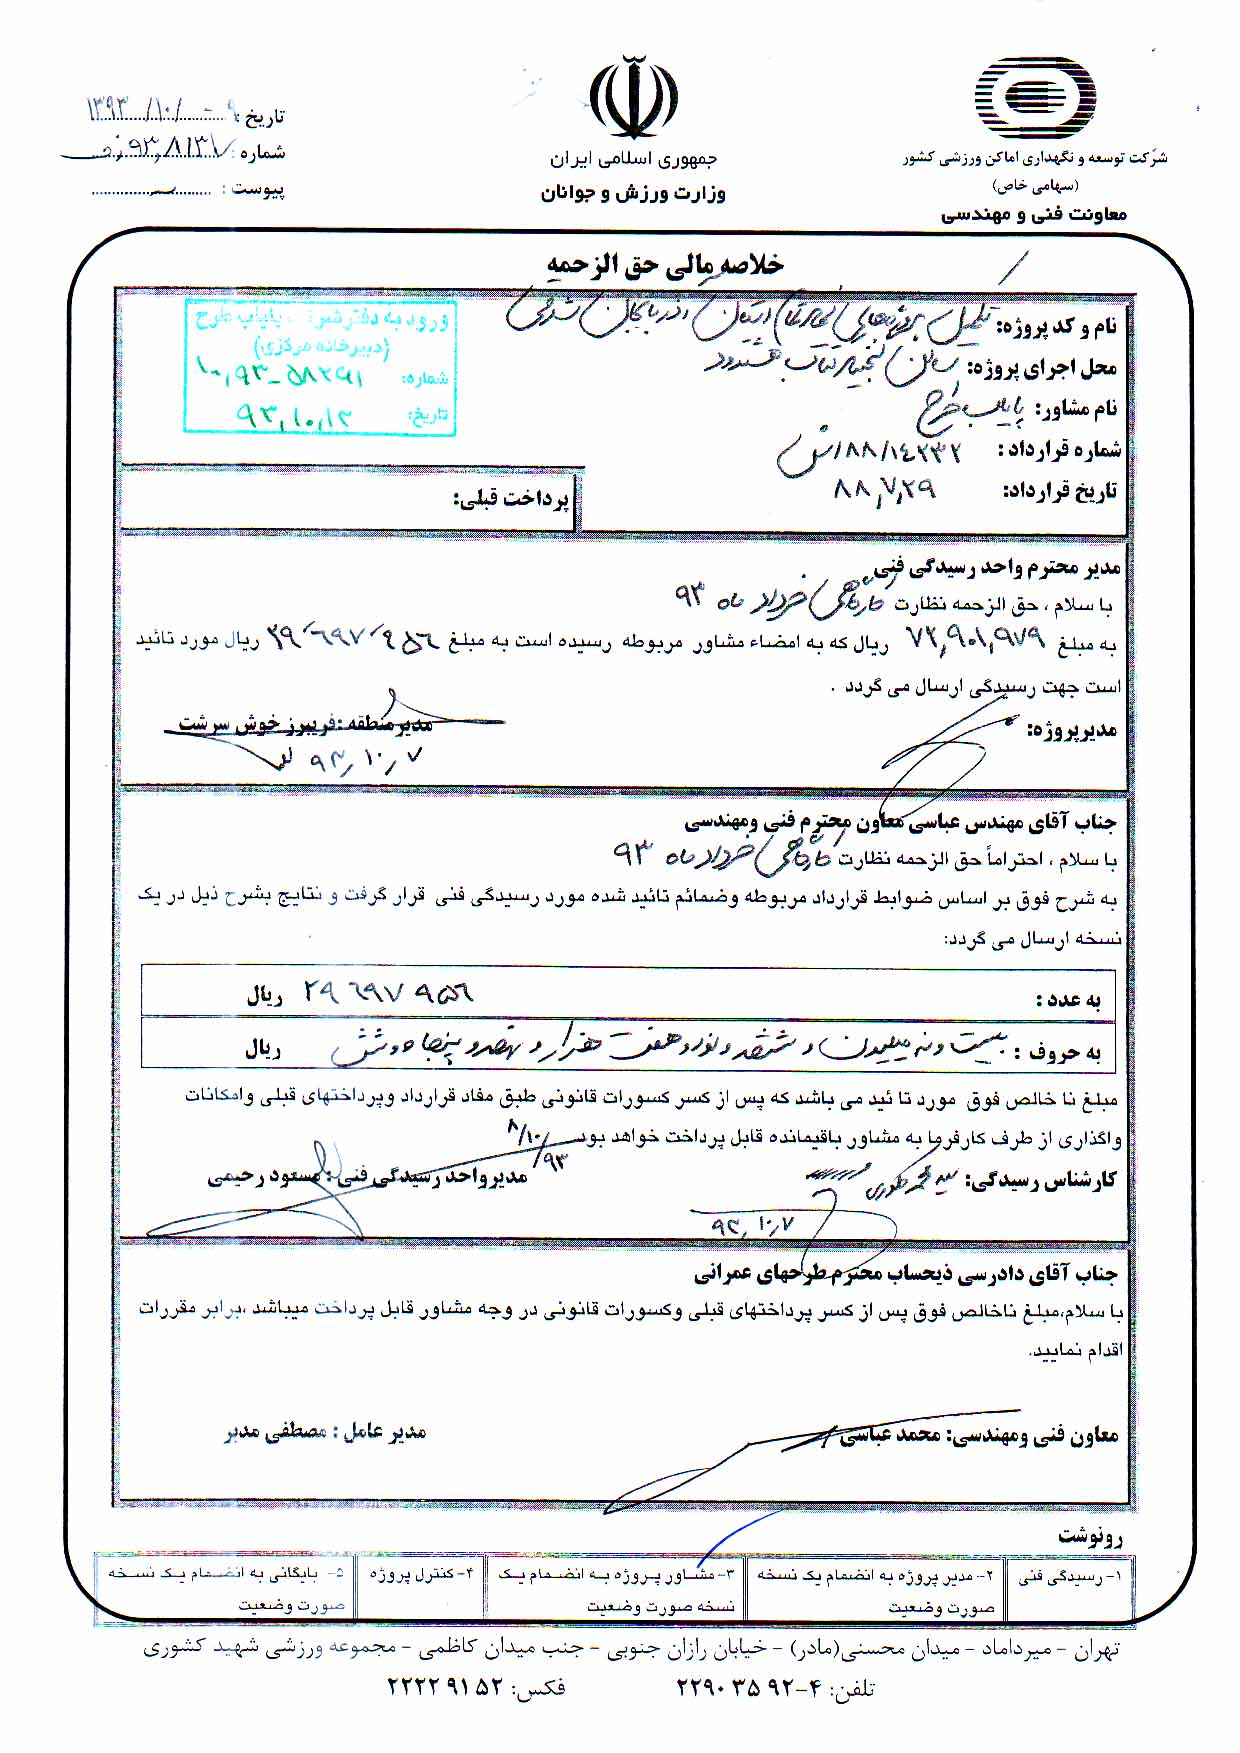 شرکت توسعه و نگهداری اماکن ورزشی کشور
(سهامی خاص)
معاونت فنی و مهندسی
جمهوری اسلامی ایران
وزارت ورزش و جوانان
تاریخ: ۱۳۹۳/۱۰/۰۹
شماره:
پیوست:
خلاصه مالی حق الزحمه
نام و کد پروژه: تکمیل پروژه‌های استان آذربایجان شرقی
محل اجرای پروژه: سالن هشترود
نام مشاور: پایاب طرح
شماره قرارداد: ۸۸/۱۴۲۳۲/ش
تاریخ قرارداد: ۸۸,۷,۲۹
ورود به دفتر پایاب طرح
(دبیرخانه مرکزی)
شماره: ۱۰,۹۳-۵۸۲۹۱
تاریخ: ۹۳,۱۰,۱۳
پرداخت قبلی:
مدیر محترم واحد رسیدگی فنی
با سلام ، حق الزحمه نظارت کارگاهی خرداد ماه ۹۳
به مبلغ ۷۲,۹۰۱,۹۷۹ ریال که به امضاء مشاور مربوطه رسیده است به مبلغ ۲۹٬۶۹۷٬۹۵۶ ریال مورد تائید
است جهت رسیدگی ارسال می گردد .
مدیرپروژه:
مدیرمنطقه :فریبرز خوش سرشت
۹۳,۱۰,۷
جناب آقای مهندس عباسی معاون محترم فنی ومهندسی
با سلام ، احتراماً حق الزحمه نظارت کارگاهی خرداد ماه ۹۳
به شرح فوق بر اساس ضوابط قرارداد مربوطه وضمائم تائید شده مورد رسیدگی فنی قرار گرفت و نتایج بشرح ذیل در یک
نسخه ارسال می گردد:
به عدد : ۲۹ ۶۹۷ ۹۵۶ ریال
به حروف : بیست ونه میلیون و ششصد و نود و هفت هزار و نهصد و پنجاه و شش ریال
مبلغ نا خالص فوق مورد تا ئید می باشد که پس از کسر کسورات قانونی طبق مفاد قرارداد وپرداختهای قبلی وامکانات
واگذاری از طرف کارفرما به مشاور باقیمانده قابل پرداخت خواهد بود
۹۳/۱۰/۸
کارشناس رسیدگی: سید محمد
مدیرواحد رسیدگی فنی : مسعود رحیمی
۹۳,۱۰,۷
جناب آقای دادرسی ذیحساب محترم طرحهای عمرانی
با سلام،مبلغ ناخالص فوق پس از کسر پرداختهای قبلی وکسورات قانونی در وجه مشاور قابل پرداخت میباشد ،برابر مقررات
اقدام نمایید.
معاون فنی ومهندسی: محمد عباسی
مدیر عامل : مصطفی مدبر
رونوشت
۱- رسیدگی فنی
۲- مدیر پروژه به انضمام یک نسخه
صورت وضعیت
۳- مشاور پروژه به انضمام یک
نسخه صورت وضعیت
۴- کنترل پروژه
۵- بایگانی به انضمام یک نسخه
صورت وضعیت
تهران - میرداماد - میدان محسنی(مادر) - خیابان رازان جنوبی - جنب میدان کاظمی - مجموعه ورزشی شهید کشوری
تلفن: ۴-۹۲ ۳۵ ۲۲۹۰
فکس: ۵۲ ۹۱ ۲۲۲۲